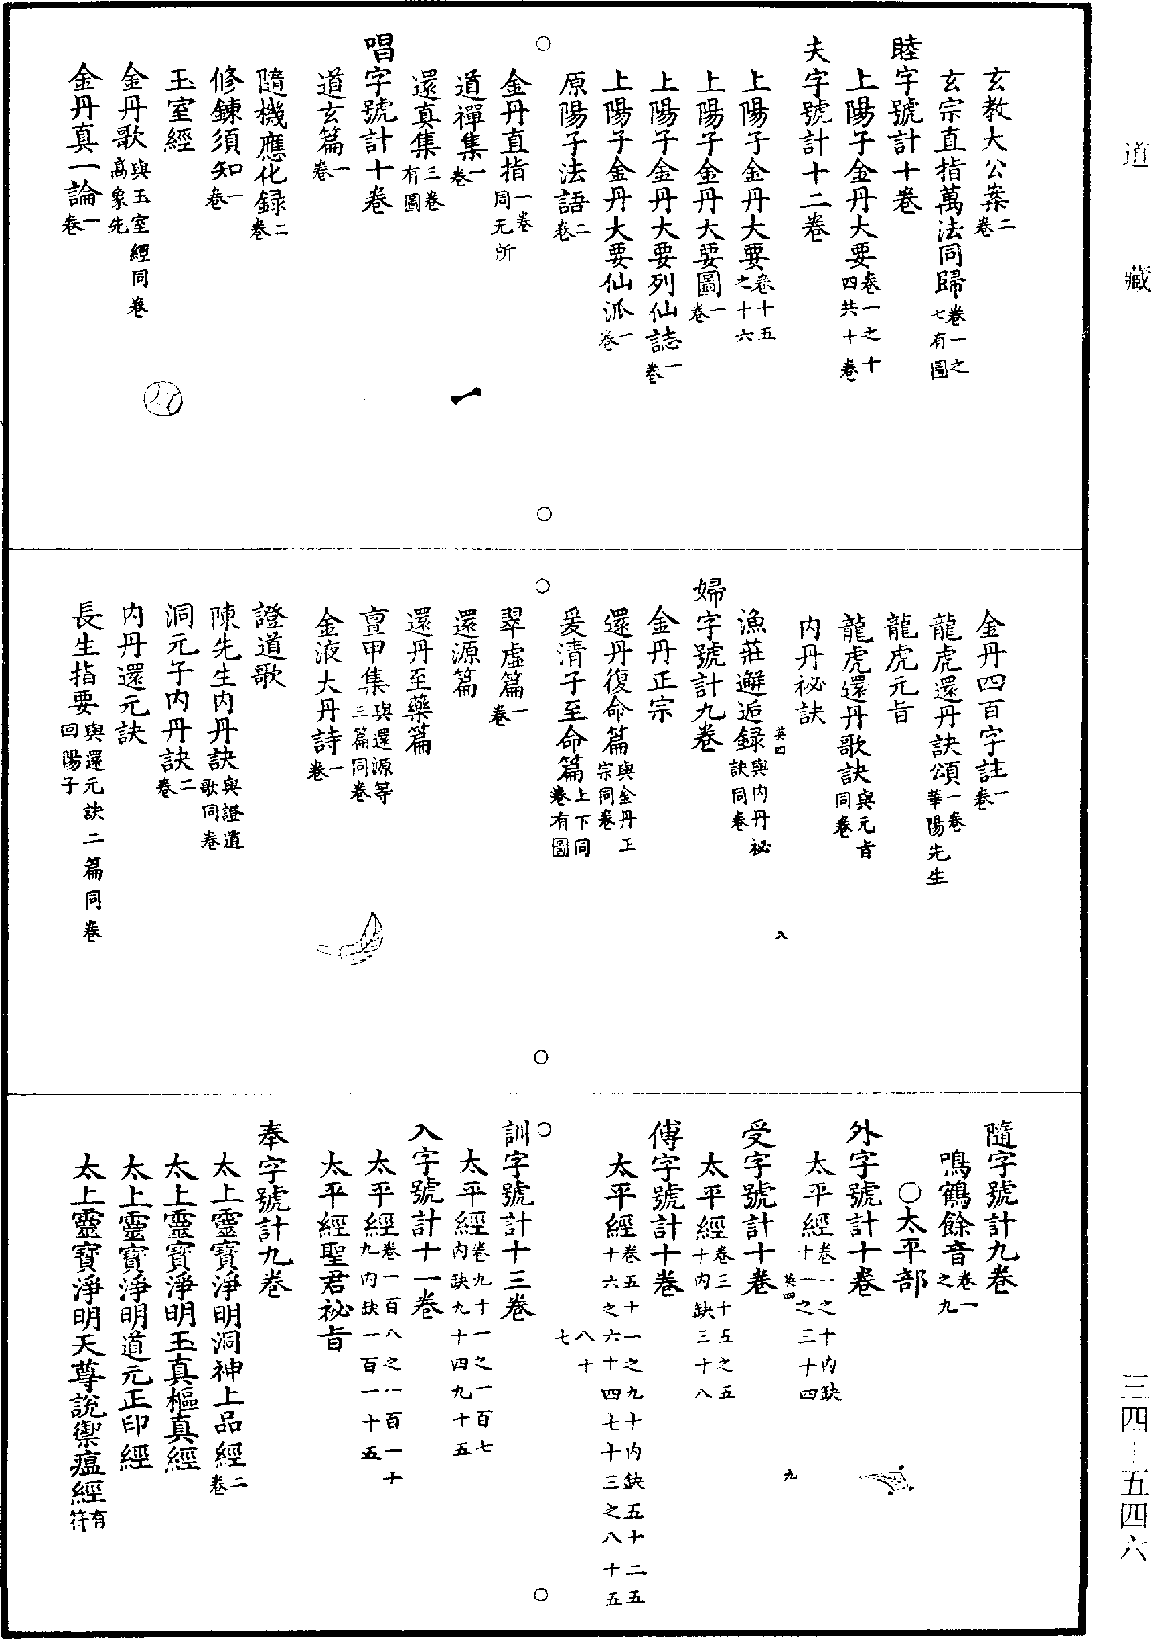 道藏
玄教大公案二卷
玄宗直指萬法同歸卷一之七有圖
睦字號計十卷
上陽子金丹大要卷一之十四共十卷
夫字號計十二卷
上陽子金丹大要卷十五之十六
上陽子金丹大要圖一卷
上陽子金丹大要列仙誌一卷
上陽子金丹大要仙派一卷
原陽子法語二卷
金丹直指一卷同无所
道禪集一卷
還真集三卷有圖
唱字號計十卷
道玄篇一卷
隨機應化録二卷
修鍊須知一卷
玉室經
金丹歌與玉室經同卷高象先
金丹真一論一卷
金丹四百字註一卷
龍虎還丹訣頌一卷華陽先生
龍虎元旨
龍虎還丹歌訣與元旨同卷
内丹祕訣
漁莊邂逅録與内丹祕訣同卷
英四
八
婦字號計九卷
金丹正宗
還丹復命篇與金丹正宗同卷
爰清子至命篇上下同卷有圖
翠虛篇一卷
還源篇
還丹至藥篇
亶甲集與還源等三篇同卷
金液大丹詩一卷
證道歌
陳先生内丹訣與證道歌同卷
洞元子内丹訣二卷
内丹還元訣
長生指要與還元訣二篇同卷回陽子
隨字號計九卷
鳴鶴餘音卷一之九
○太平部
外字號計十卷
太平經卷一之十内缺十一之三十四
英四
九
受字號計十卷
太平經卷三十五之五十内缺三十八
傅字號計十卷
太平經卷五十一之九十内缺五十二五十六之六十四七十三之八十五八十七
訓字號計十三卷
太平經卷九十一之一百七内缺九十四九十五
入字號計十一卷
太平經卷一百八之一百一十九内缺一百一十五
太平經聖君祕旨
奉字號計九卷
太上靈寶淨明洞神上品經二卷
太上靈寶淨明玉真樞真經
太上靈寶淨明道元正印經
太上靈寶淨明天尊說禦瘟經有符
三四—五四六